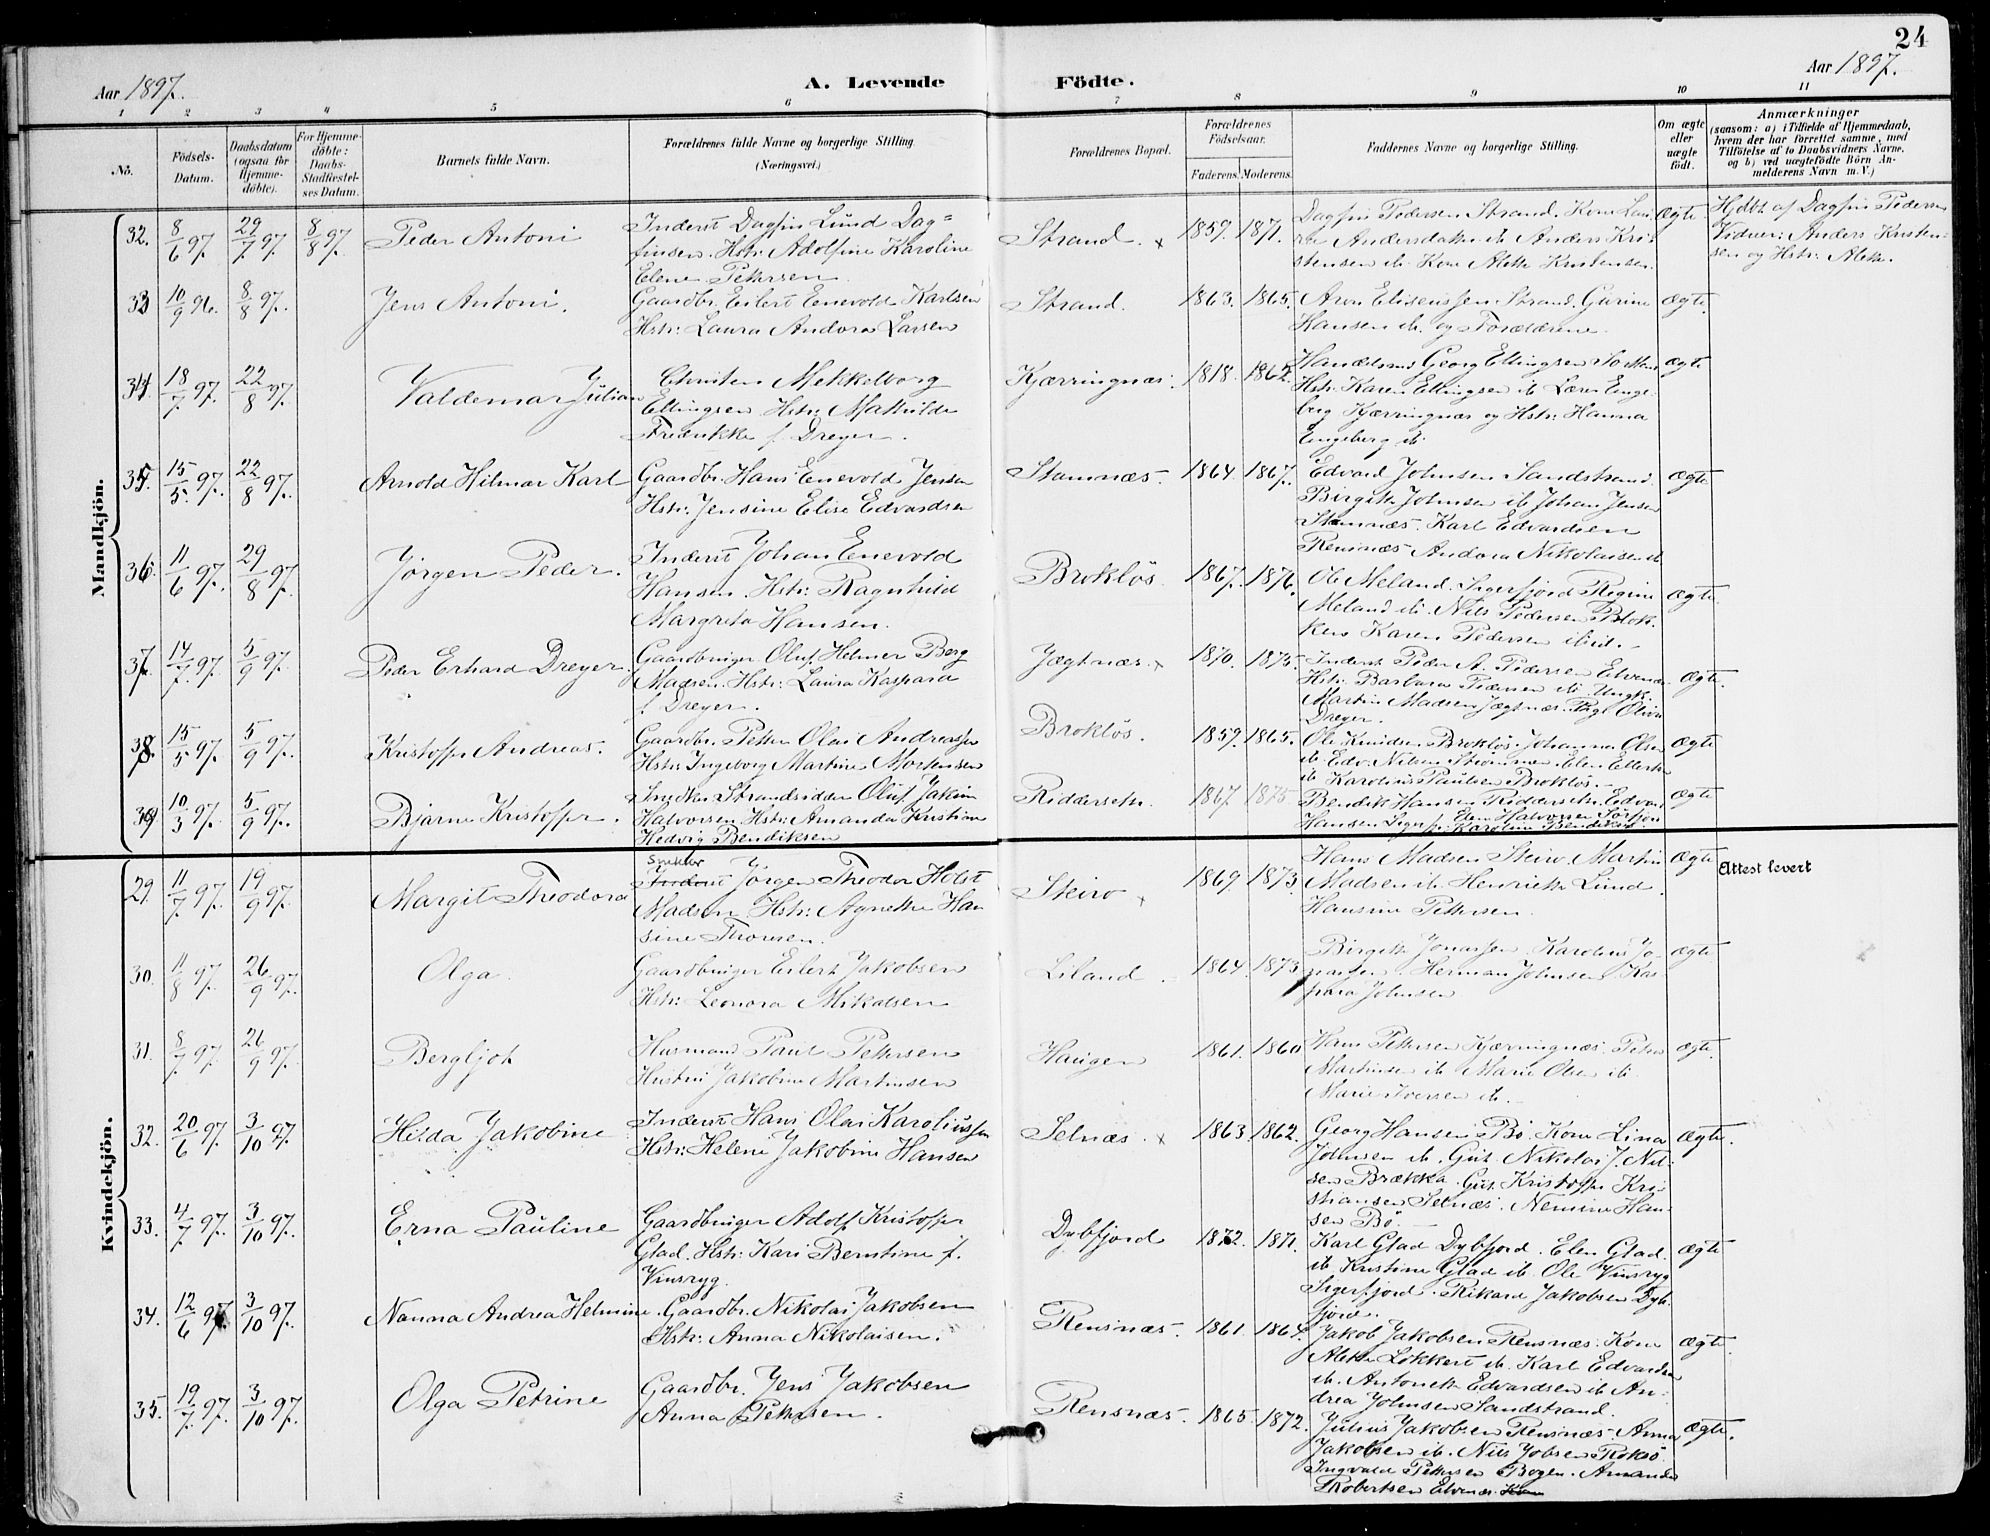 24
Aar 1897.
A. Levende Födte.
Aar 1897.
1 2 3 4 5 6 7 8 9 10 11
No.
Födsels-Datum.
Daabsdatum (ogsaa for Hjemmedöbte).
For Hjemmedöbte: Daabs-Stadfæstelses Datum.
Barnets fulde Navn.
Forældrenes fulde Navne og borgerlige Stilling. (Næringsvei.)
Forældrenes Bopæl.
Forældrenes Födselsaar.
Faderens. Moderens.
Faddernes Navne og borgerlige Stilling.
Om ægte eller uægte födt.
Anmærkninger
(saasom: a) i Tilfælde af Hjemmedaab,
hvem der har forrettet samme, med
Tilföielse af to Daabsvidners Navne.
og b) ved uægtefödte Börn Anmelderens Navn m. V.)
Mandkjön.
32. 8/6 97. 29/7 97. 8/8 97. Peder Antoni
Inderst Dagfin Lund Dag=
finsen. Hstr: Adolfine Karoline
Elene Pettersen
Strand. x 1859. 1871.
Dagfin Pedersen Strand. Kone Lau-
ra Andersdatter ib. Anders Kri-
stensen ib. Kone Alette Kristensen
Ægte
Hjdbt. af Dagfin Pedersen
Vidner: Anders Kristen-
sen og Hstr: Alette.
33 10/9 96. 8/8 97. Jens Antoni.
Gaardbr. Eilert Enevold Karlsen
Hstr: Laura Andora Larsen
Strand. 1863. 1865.
Aron Eliseussen Strand. Gurine
Hansen ib. og Forældrene.
Ægte.
34. 18/7 97. 22/8 97. Valdemar Julian
Christen Mekkelborg
Ellingsen Hstr: Mathilde
Fredrikke f. Dreyer.
Kjærringnæs. 1818. 1862.
Handelsmd Georg Ellingsen
Hstr: Karen Ellingsen ib. Lars Enge-
berg Kjærringnæs og Hstr: Hanna
Engeberg ib.
Ægte
35. 15/5 97. 22/8 97. Arnold Hilmar Karl
Gaardbr. Hans Enevold Jensen
Hstr: Jensine Elise Edvardsen
Stamnæs. 1864. 1867.
Edvard Johnsen Sandstrand.
Birgitte Johnsen ib. Johan Jensen
Stamnæs. Karl Edvardsen
Rensnæs Andora Nikolaisen ib
Ægte
36. 11/6 97. 29/8 97. Jörgen Peder.
Inderst Johan Enevold
Hansen. Hstr: Ragnhild
Margrete Hansen.
Broklös. 1867. 1876.
Ole Meland. Sigerfjord Regine
Meland ib. Nils Pedersen Blok-
ken Karen Pedersen ibid.
Ægte.
37. 14/7 97. 5/9 97. Peder Erhard Dreyer.
Gaardbruger Oluf Helmer Berg
Madsen. Hstr: Laura Kaspara
f. Dreyer.
Jægtnæs. x 1870. 1875.
Inderst Peder A. Pedersen Elvenæs
Hstr: Barbara Pedersen ib. Ungk.
Martin Madsen Jægtnæs. Pige Olivia
Dreyer.
Ægte.
38. 15/5 97. 5/9 97. Kristoffer Andreas.
Gaardbr. Petter Olai Andreassen
Hstr: Ingeborg Martine Mortensen
Broklös. 1859. 1865.
Ole Knudsen Broklös. Johanna Olsen
ib. Edv. Nilsen Elen
ib. Karolius Paulsen Broklös.
Ægte
39. 10/3 97. 5/9 97. Bjarne Kristoffer.
Snedker Strandsidder Oluf Jakim
Halvorsen Hstr: Amanda Kristine
Hedvig Bendiksen
Ridderseter. 1867. 1875
Bendik Hansen Ridderseter. Edvar
Hansen Sigerfj. Elen Halvorsen
Karoline Bendiksen
Ægte
Kvindekjön.
29. 11/7 97. 19/9 97. Margit Theodora
Snekker
Inderst Jörgen Theodor Holst
Madsen Hstr: Agnethe Han
sine Thomsen.
Steiro x 1869 1873.
Hans Madsen Steiro. Martin
Madsen ib. Henriette Lund
Hansine Pettersen.
Ægte
Attest levert
30. 11/8 97. 26/9 97. Olga.
Gaardbruger Eilert Jakobsen
Hstr: Leonora Mikalsen
Liland. 1864. 1873
Birgitte Jonassen. Karolius Jo-
nassen. Herman Johnsen. Kas
para Johnsen
Ægte
31. 8/7 97. 26/9 97. Bergljot
Husmand Paul Pettersen
Hustru Jakobine Martinsen
Haugen 1861. 1860
Hans Pettersen Kjærringnæs. Peter
Martinsen ib. Marie Olsen ib.
Marie Iversen ib.
Ægte.
32. 20/6 97. 3/10 97. Hilda Jakobine
Inderst Hans Olai Karoliussen
Hstr: Helene Jakobine Hansen
Selnæs. x 1863 1862.
Georg Hansen Bö. Kone Lina
Johnsen ib. Gut. Nikolai J. Nil-
sen Brækka. Gut. Kristoffer Kri-
stiansen Selnæs. Nemine Han-
sen Bö.
Ægte.
33. 4/7 97. 3/10 97. Erna Pauline
Gaardbruger Adolf Kristoffer
Glad. Hstr: Kari Berntine f.
Vinsryg.
Dybfjord 1872. 1871.
Karl Glad Dybfjord. Elen Glad.
ib. Kristine Glad ib. Ole Vinsryg
Sigerfjord. Rikard Jakobsen Dyb-
fjord.
Ægte
34. 12/6 97. 3/10 97. Nanna Andrea Helmine.
Gaardbr. Nikolai Jakobsen
Hstr: Anna Nikolaisen.
Rensnæs. 1861. 1864.
Jakob Jakobsen Rensnæs. Kone
Alette Lökkert ib. Karl Edvardsen
ib. Antonette Edvardsen ib. An-
drea Johnsen Sandstrand.
Ægte.
35. 19/7 97. 3/10 97. Olga Petrine
Gaardbr. Jens Jakobsen
Anna Pettersen.
Rensnæs. 1865. 1872.
Julius Jakobsen Rensnæs. Anna
Jakobsen ib. Nils Jobsen Rokсö
Ingvald Pettersen Bogen. Amanda
Robertsen Elvenæs.
Ægte.